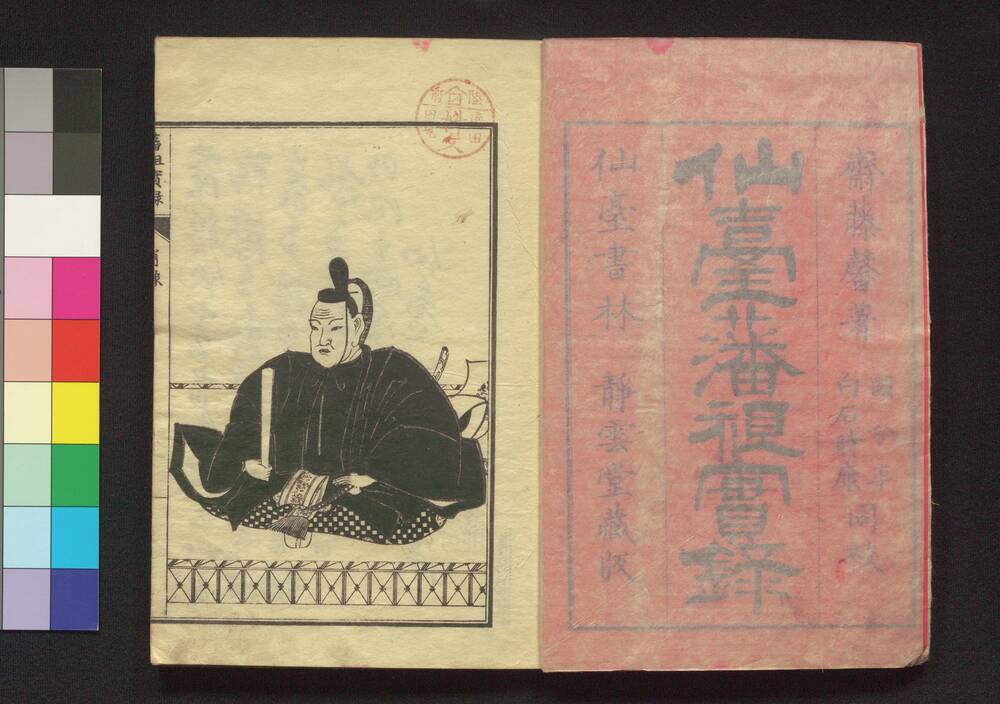 齋藤馨著
國分平
白石時康
同校
仙臺藩祖實録
仙臺書林　靜雲堂藏版
藩祖實録
肖像